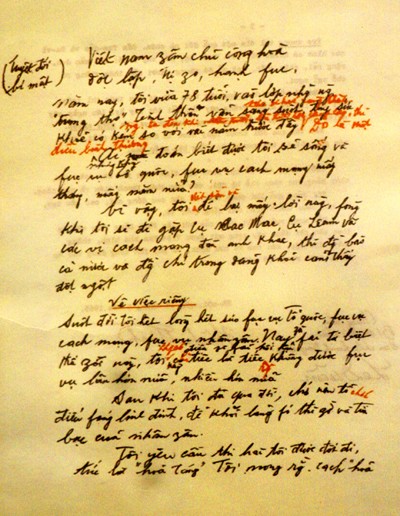 (Tuyệt đối
bí mật)
Việt nam zân chủ cộng hoà
độc lập, tự zo, hạnh fúc.
Năm nay, tôi vừa 78 tuổi, vào lớp những ng
"trung thọ". Tinh thần vẫn sáng suốt, sức
khoẻ có kém so với vài năm trước đây. Đó là một
điều bình thường
Ai mà đoán biết được tôi sẽ sống và
fục vụ tổ quốc, fục vụ cách mạng mấy
tháng, mấy năm nữa?
Vì vậy, tôi để lại mấy lời này, fòng
khi tôi sẽ đi gặp Cụ Các Mác, Cụ Lênin và
các vị cách mạng đàn anh khác, thì đg bào
cả nước và đg chí trong đảng khỏi cảm thấy
đột ngột
Về việc riêng
Suốt đời tôi hết lòng hết sức fục vụ Tổ quốc, fục vụ
cách mạng, fục vụ nhân zân. Nay zù fải từ biệt
thế giới này, tôi chỉ tiếc là tiếc không được fục
vụ lâu hơn nữa, nhiều hơn nữa
Sau khi tôi đã qua đời, chớ nên tổ chức
điếu fúng linh đình, để khỏi lãng fí thì giờ và tiền
bạc của nhân zân.
Tôi yêu cầu thi hài tôi được đốt đi,
tức là "hoả táng". Tôi mong rằng cách "hoả